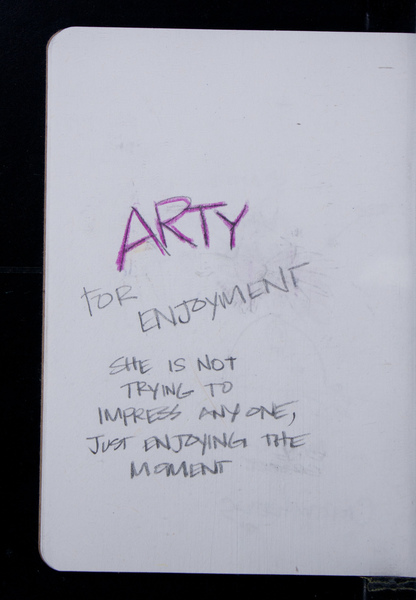 ARTY
FOR
ENJOYMENT
SHE IS NOT
TRYING TO
IMPRESS ANYONE,
JUST ENJOYING THE
MOMENT